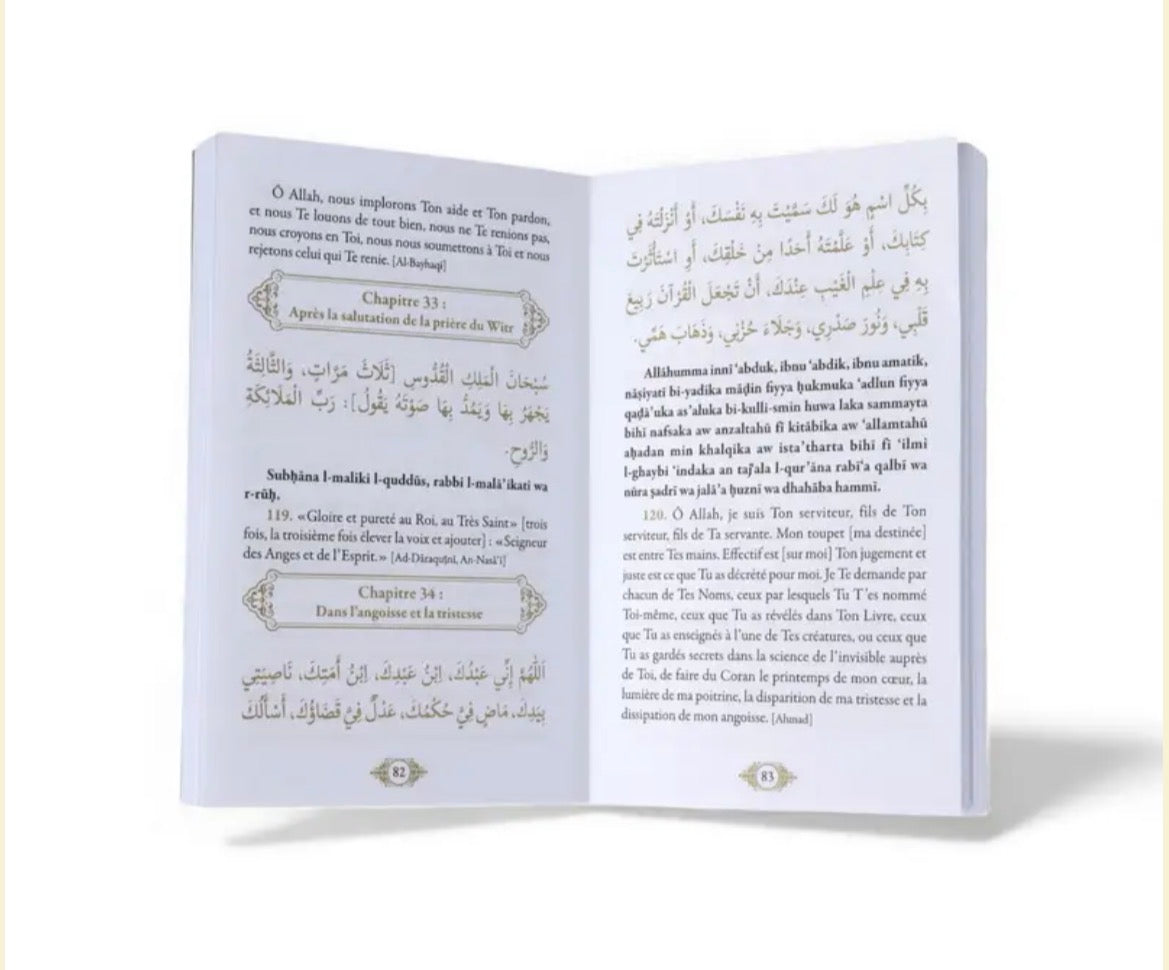 Ô Allah, nous implorons Ton aide et Ton pardon,
et nous Te louons de tout bien, nous ne Te renions pas,
nous croyons en Toi, nous nous soumettons à Toi et nous
rejetons celui qui Te renie. [Al-Bayhaqî]
Chapitre 33 :
Après la salutation de la prière du Witr
سُبْحَانَ الْمَلِكِ الْقُدُّوسِ [ثَلَاثَ مَرَّاتٍ، وَالثَّالِثَةُ
يَجْهَرُ بِهَا وَيَمُدُّ بِهَا صَوْتَهُ يَقُولُ]: رَبِّ الْمَلَائِكَةِ
وَالرُّوحِ.
Subḥâna l-maliki l-quddûs, rabbi l-malâ’ikati wa
r-rûḥ.
119. «Gloire et pureté au Roi, au Très Saint» [trois
fois, la troisième fois élever la voix et ajouter] : «Seigneur
des Anges et de l’Esprit.» [Ad-Dâraquṭnî, An-Nasâ’î]
Chapitre 34 :
Dans l’angoisse et la tristesse
اَللَّهُمَّ إِنِّي عَبْدُكَ، اِبْنُ عَبْدِكَ، اِبْنُ أَمَتِكَ، نَاصِيَتِي
بِيَدِكَ، مَاضٍ فِيَّ حُكْمُكَ، عَدْلٌ فِيَّ قَضَاؤُكَ، أَسْأَلُكَ
82
بِكُلِّ اسْمٍ هُوَ لَكَ سَمَّيْتَ بِهِ نَفْسَكَ، أَوْ أَنْزَلْتَهُ فِي
كِتَابِكَ، أَوْ عَلَّمْتَهُ أَحَدًا مِنْ خَلْقِكَ، أَوِ اسْتَأْثَرْتَ
بِهِ فِي عِلْمِ الْغَيْبِ عِنْدَكَ، أَنْ تَجْعَلَ الْقُرْآنَ رَبِيعَ
قَلْبِي، وَنُورَ صَدْرِي، وَجَلَاءَ حُزْنِي، وَذَهَابَ هَمِّي.
Allâhumma innî ‘abduk, ibnu ‘abdik, ibnu amatik,
nâṣiyatî bi-yadika mâḍin fiyya ḥukmuka ‘adlun fiyya
qaḍâ’uka as’aluka bi-kulli-smin huwa laka sammayta
bihî nafsaka aw anzaltahû fî kitâbika aw ‘allamtahû
aḥadan min khalqika aw ista’tharta bihî fî ‘ilmi
l-ghaybi ‘indaka an taj‘ala l-qur’âna rabî‘a qalbî wa
nûra ṣadrî wa jalâ’a ḥuznî wa dhahâba hammî.
120. Ô Allah, je suis Ton serviteur, fils de Ton
serviteur, fils de Ta servante. Mon toupet [ma destinée]
est entre Tes mains. Effectif est [sur moi] Ton jugement et
juste est ce que Tu as décrété pour moi. Je Te demande par
chacun de Tes Noms, ceux par lesquels Tu T’es nommé
Toi-même, ceux que Tu as révélés dans Ton Livre, ceux
que Tu as enseignés à l’une de Tes créatures, ou ceux que
Tu as gardés secrets dans la science de l’invisible auprès
de Toi, de faire du Coran le printemps de mon cœur, la
lumière de ma poitrine, la disparition de ma tristesse et la
dissipation de mon angoisse. [Ahmad]
83